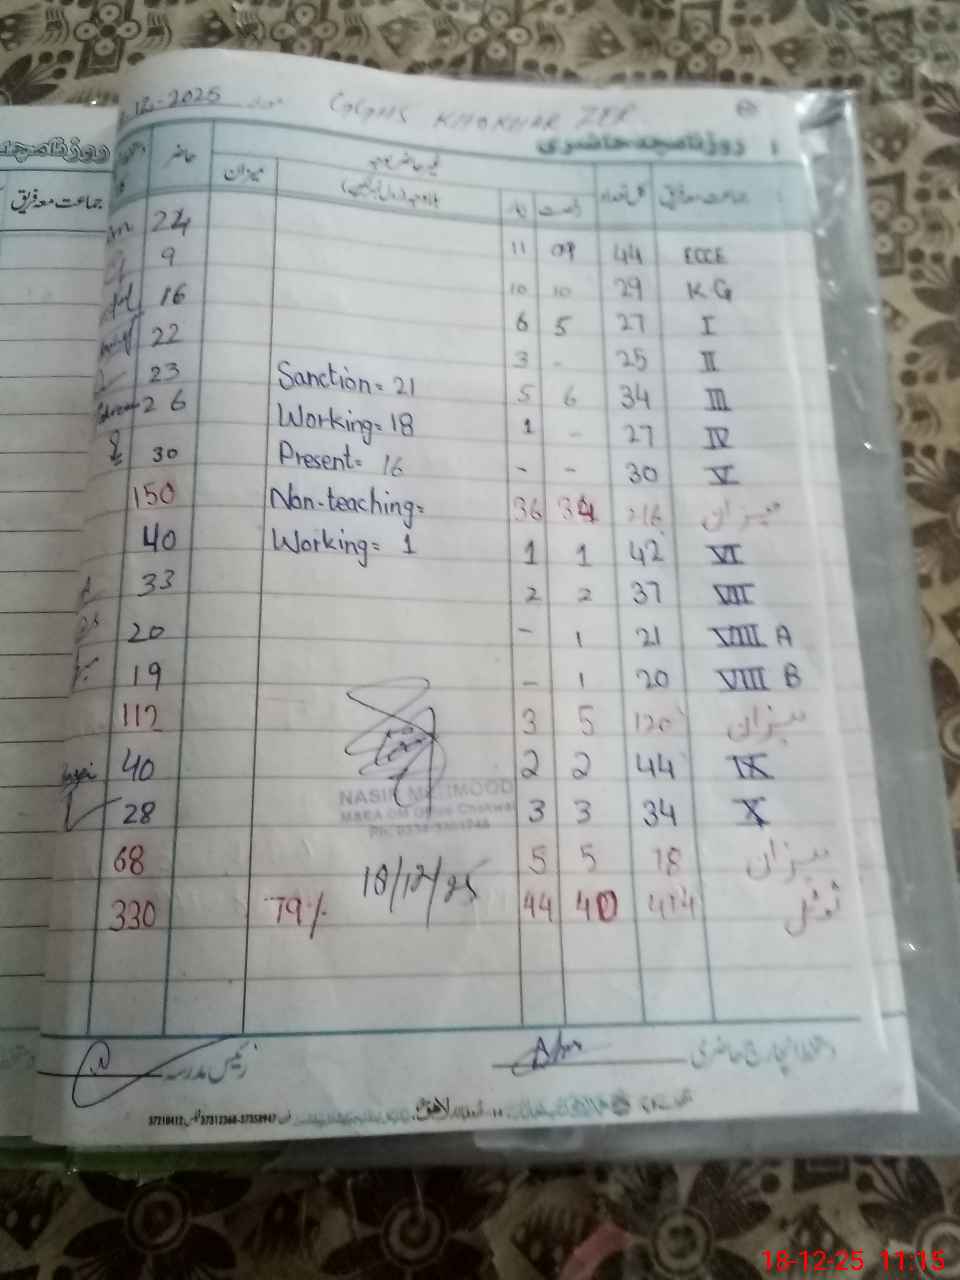 12-2025 مورخہ GGHS KHOKHAR ZER
روزنامچہ حاضری
روزنامچہ
جماعت معہ فریق
جماعت معہ فریق کل تعداد رخصت میزان حاضر
ECCE 44 09 11 24
KG 29 10 10 9
I 27 5 6 16
II 25 - 3 22
III 34 6 5 23
IV 27 - 1 26
V 30 - - 30
میزان 216 34 36 150
VI 42 1 1 40
VII 37 2 2 33
VIII A 21 1 - 20
VIII B 20 1 - 19
میزان 120 5 3 112
IX 44 2 2 40
X 34 3 3 28
میزان 78 5 5 68
ٹوٹل 414 40 44 79% 330
Sanction= 21
Working= 18
Present= 16
Non-teaching=
Working= 1
NASIR MEHMOOD
18/12/25
دستخط انچارج حاضری
رئیس مدرسہ
لاہور
18-12-25 11:15